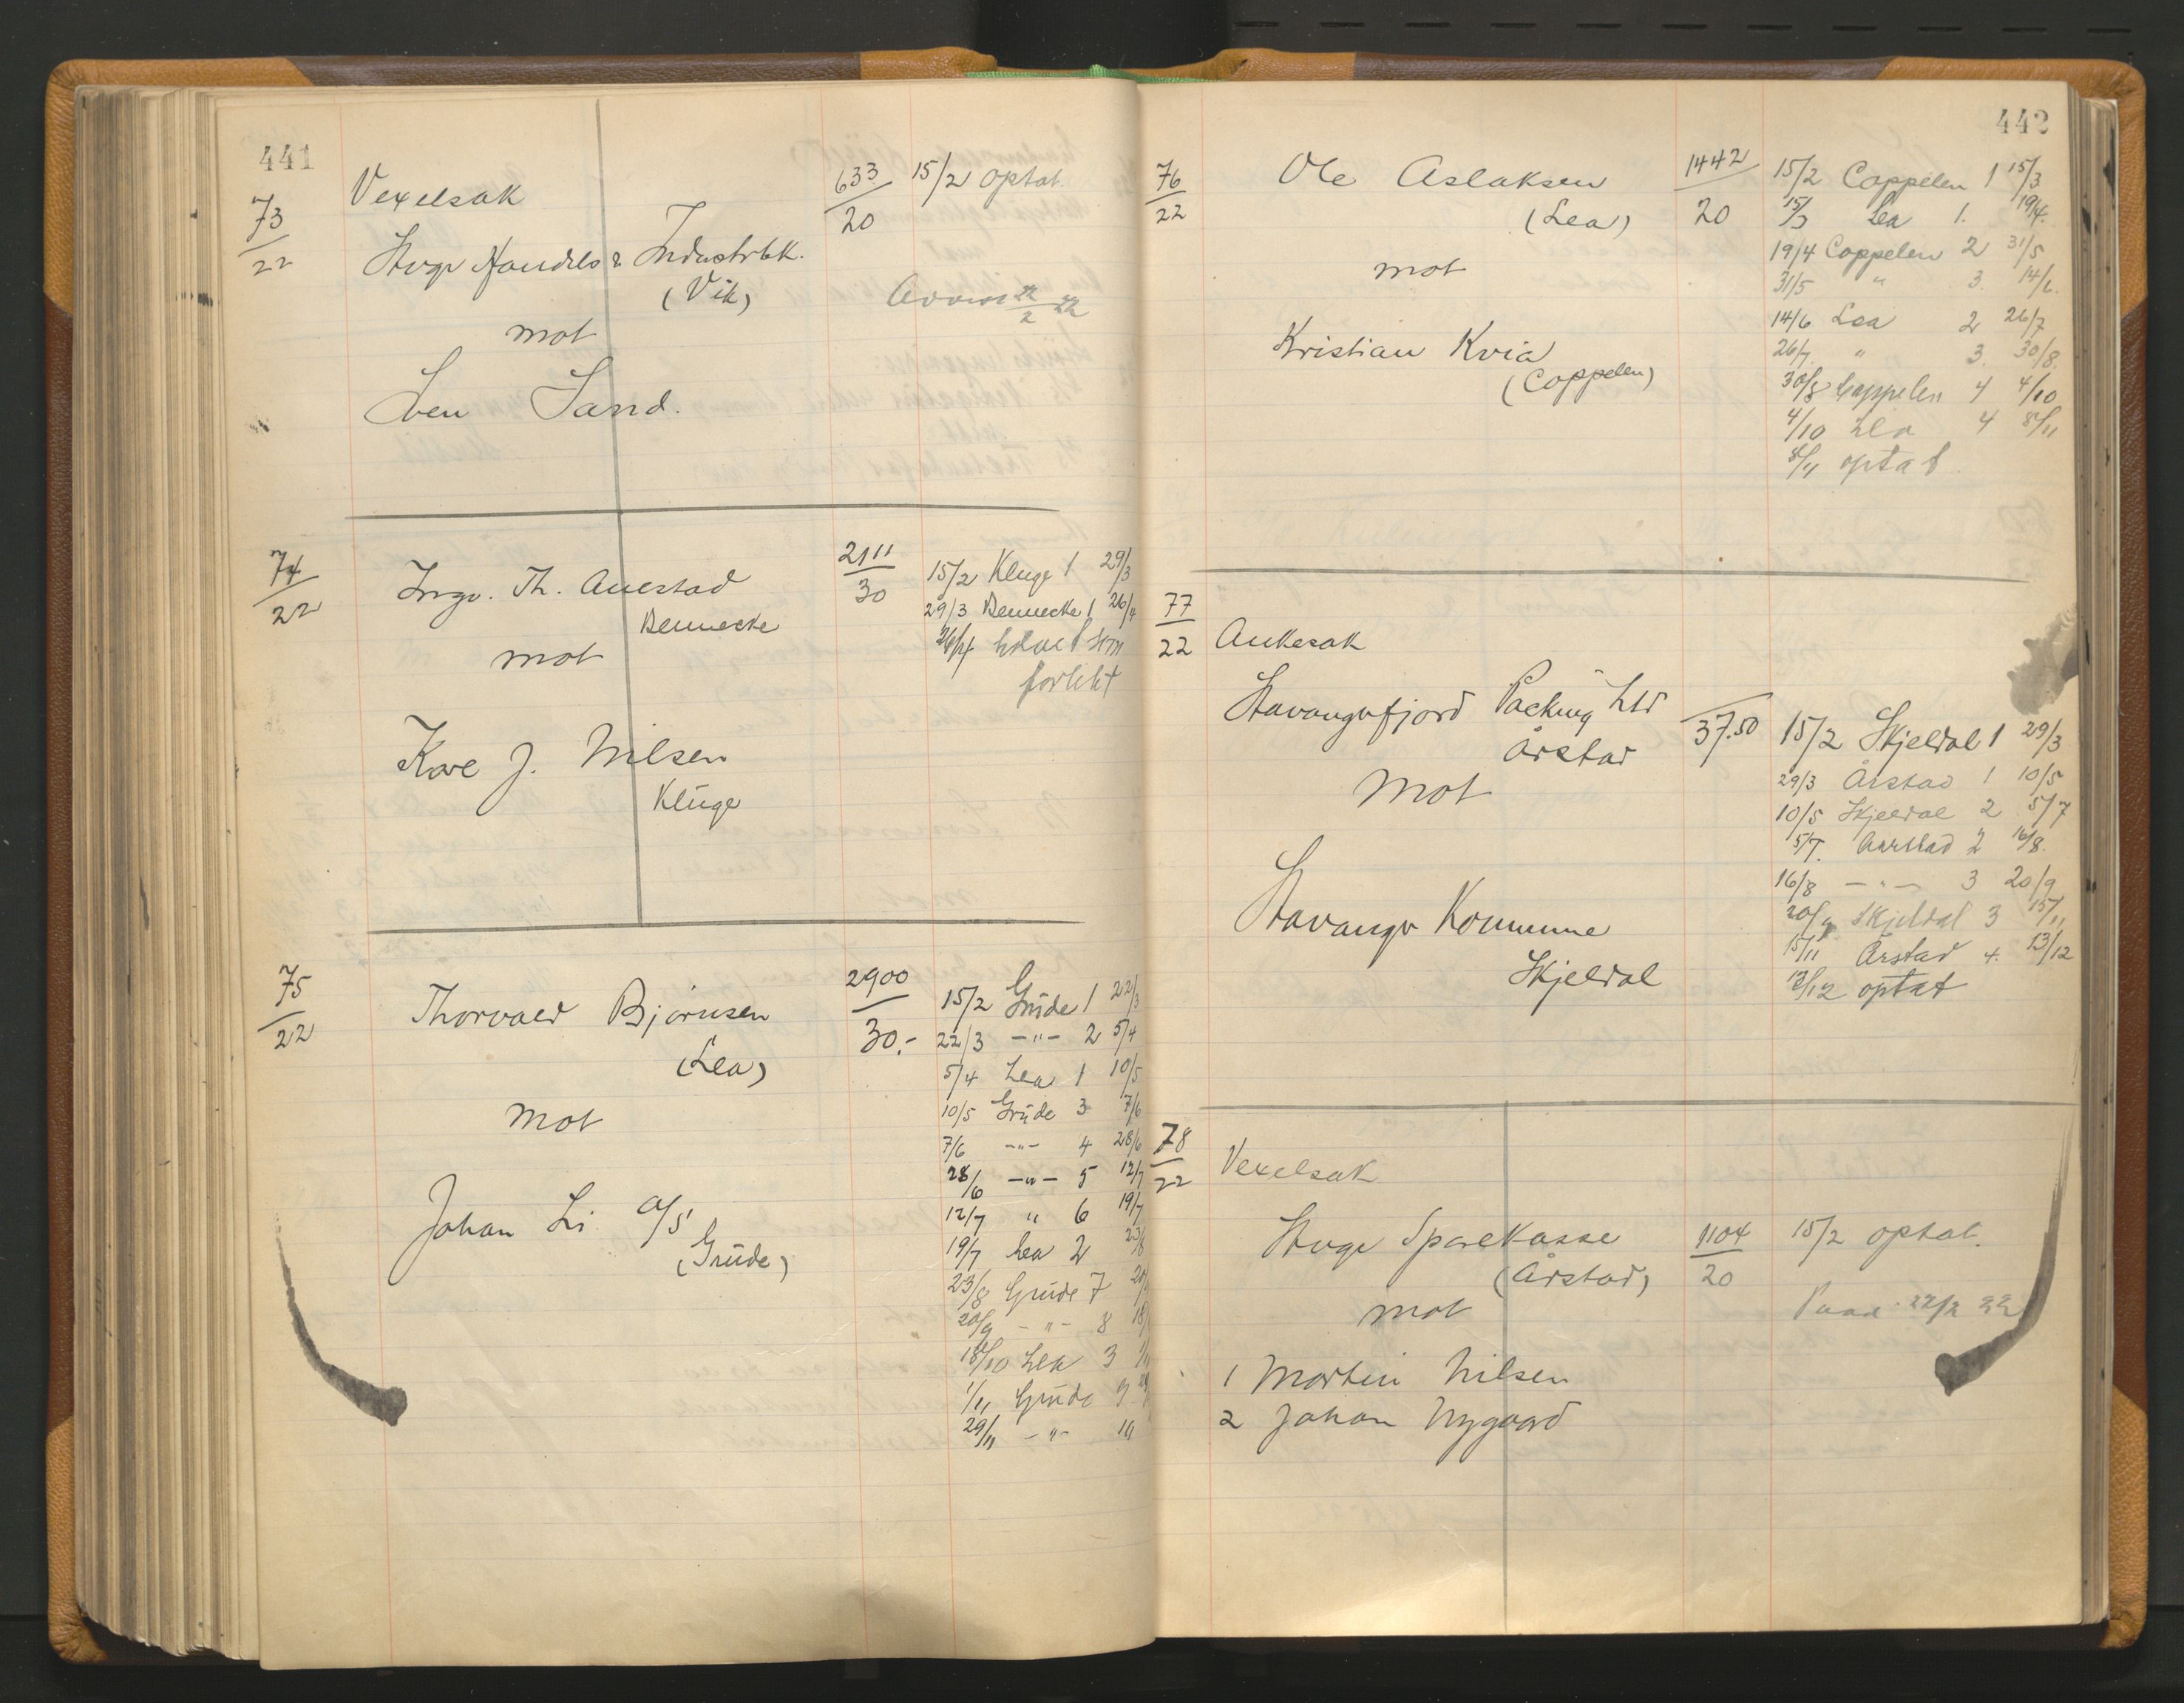 441
73/22
Vexelsak
633/20
15/2 optat.
Stvgr Handels & Industribk.
(Vik)
22/2 22
mot
Sven Sand.
74/22
Ingv. Th. Auestad
Bennecke
2111/30
15/2 Kluge 1 29/3
29/3 Bennecke 1 26/4
26/4 hævet som
forlikt
mot
Kare J. Nilsen
Kluge
75/22
Thorvald Bjørnsen
(Lea)
2900/30.-
mot
Johan Li A/S
(Grude)
15/2 Grude 1 22/3
22/3 -"- 2 5/4
5/4 Lea 1 10/5
10/5 Grude 3 7/6
7/6 -"- 4 28/6
28/6 -"- 5 12/7
12/7 " 6 19/7
19/7 Lea 2 23/8
23/8 Grude 7 20/
20/9 -"- 8 18/
18/10 Lea 3 1/11
1/11 Grude 9 29/
29/11 -"- 10
442
76/22
Ole Aslaksen
(Lea)
1442/20
mot
Kristian Kvia
(Coppelen)
15/2 Coppelen 1 15/3
15/3 Lea 1. 19/4.
19/4 Coppelen 2 31/5
31/5 " 3. 14/6.
14/6 Lea 2 26/7
26/7 " 3. 30/8.
30/8 Coppelen 4 4/10
4/10 Lea 4 8/11
8/11 optat
77/22
Ankesak
Stavangerfjord Packing Ltd
Årstad
37.50
mot
Stavanger Kommune
Skjeldal
15/2 Skjeldal 1 29/3
29/3 Årstad 1 10/5
10/5 Skjeldal 2 5/7
5/7. Aarstad 2 16/8.
16/8 -"- 3 20/9
20/9 Skjeldal 3 15/11
15/11 Årstad 4. 13/12
13/12 optat
78/22
Vexelsak
Stvgr Sparekasse
(Årstad)
1104/20
15/2 optat.
22/2 22
mot
1 Martin Nilsen
2 Johan Nygaard